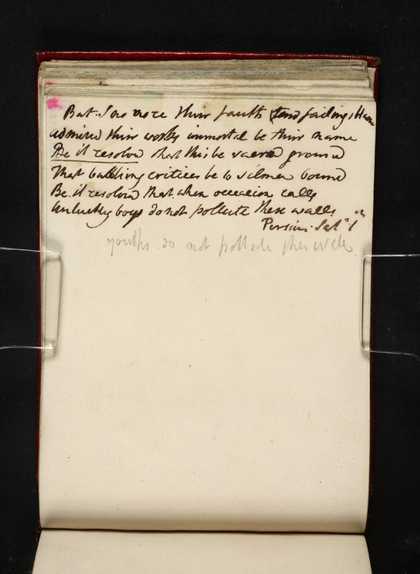 But I no more their faults and failings
admired their works immortal be their name
Be it resolved that this be sacred ground
That babbling critics be to silence bound
Be it resolved that when occasion calls
Unlucky boys do not pollute these walls
Persius. Sat 1
youths do not pollute